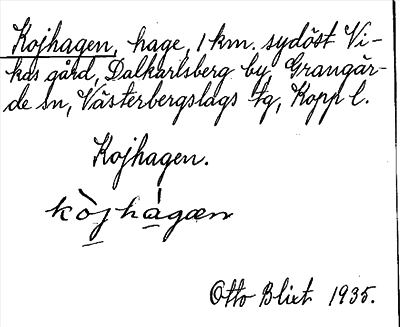 Kojhagen, hage, 1 km. sydöst Vi-
kas gård, Dalkarlsberg by, Grangär-
de sn, Västerbergslags tg, Kopp l.
Kojhagen.
kòj̠há̠gæn
Otto Blixt 1935.